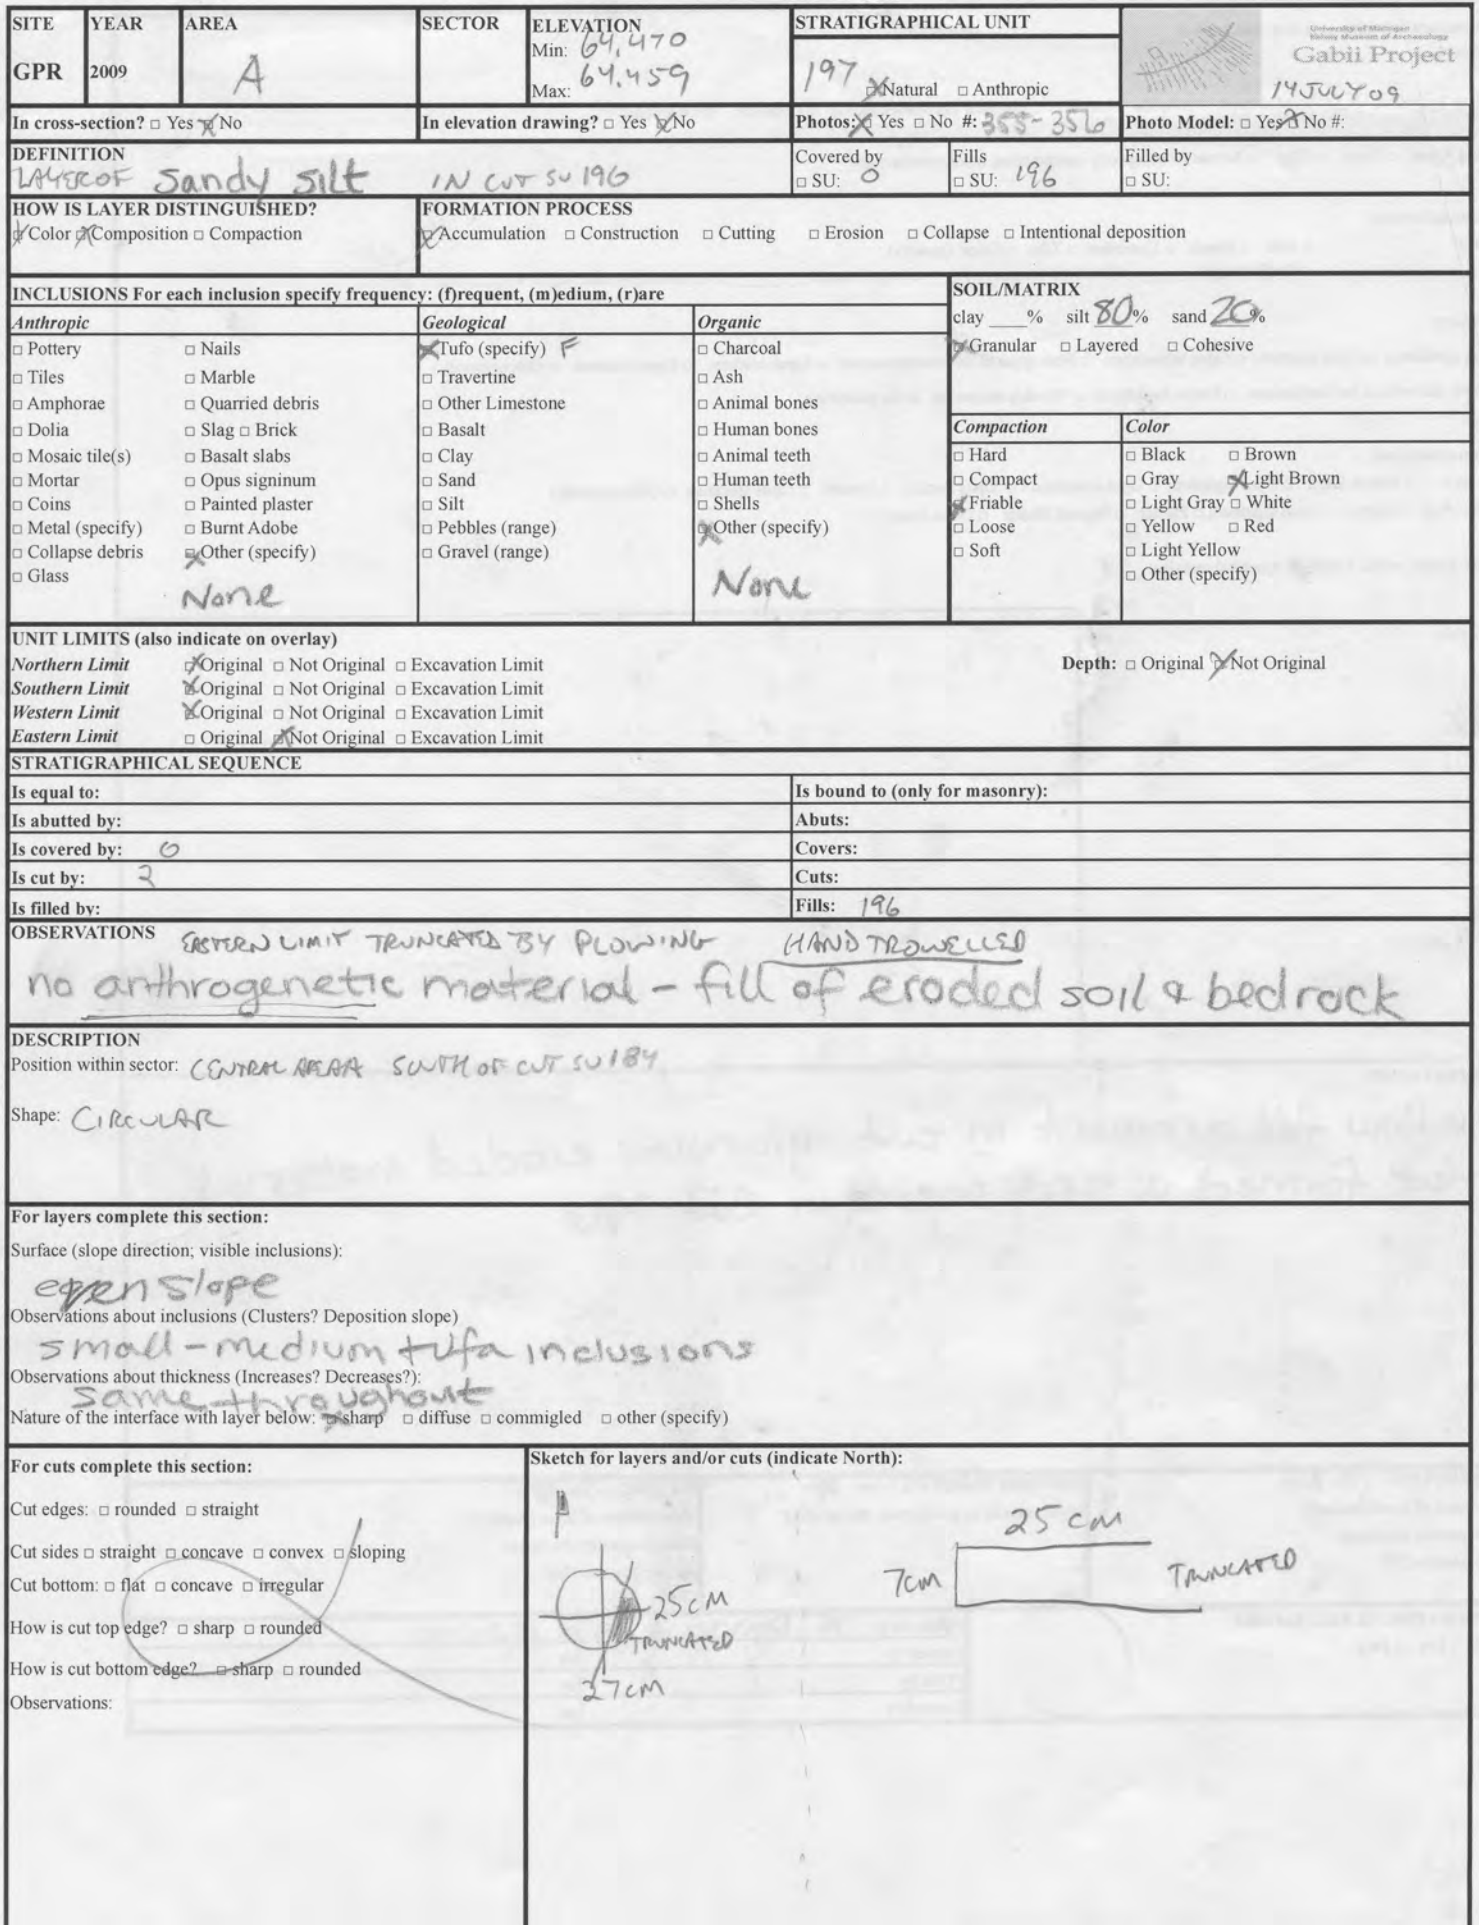 SITE YEAR AREA SECTOR ELEVATION STRATIGRAPHICAL UNIT
University of Michigan
Kelsey Museum of Archaeology
Gabii Project
GPR 2009 A Min: 64.470
Max: 64.459
197 ☒ Natural □ Anthropic
14 JULY 09
In cross-section? □ Yes ☒ No In elevation drawing? □ Yes ☒ No Photos: ☒ Yes □ No #: 355-356 Photo Model: □ Yes ☒ No #:
DEFINITION
LAYER OF Sandy Silt IN CUT SU 196
Covered by
□ SU: 0
Fills
□ SU: 196
Filled by
□ SU:
HOW IS LAYER DISTINGUISHED?
☒ Color ☒ Composition □ Compaction
FORMATION PROCESS
☒ Accumulation □ Construction □ Cutting □ Erosion □ Collapse □ Intentional deposition
INCLUSIONS For each inclusion specify frequency: (f)requent, (m)edium, (r)are
Anthropic
□ Pottery □ Nails
□ Tiles □ Marble
□ Amphorae □ Quarried debris
□ Dolia □ Slag □ Brick
□ Mosaic tile(s) □ Basalt slabs
□ Mortar □ Opus signinum
□ Coins □ Painted plaster
□ Metal (specify) □ Burnt Adobe
□ Collapse debris ☒ Other (specify)
□ Glass
None
Geological
☒ Tufo (specify) F
□ Travertine
□ Other Limestone
□ Basalt
□ Clay
□ Sand
□ Silt
□ Pebbles (range)
□ Gravel (range)
Organic
□ Charcoal
□ Ash
□ Animal bones
□ Human bones
□ Animal teeth
□ Human teeth
□ Shells
☒ Other (specify)
None
SOIL/MATRIX
clay ____% silt 80% sand 20%
☒ Granular □ Layered □ Cohesive
Compaction
□ Hard
□ Compact
☒ Friable
□ Loose
□ Soft
Color
□ Black □ Brown
□ Gray ☒ Light Brown
□ Light Gray □ White
□ Yellow □ Red
□ Light Yellow
□ Other (specify)
UNIT LIMITS (also indicate on overlay)
Northern Limit ☒ Original □ Not Original □ Excavation Limit Depth: □ Original ☒ Not Original
Southern Limit ☒ Original □ Not Original □ Excavation Limit
Western Limit ☒ Original □ Not Original □ Excavation Limit
Eastern Limit □ Original ☒ Not Original □ Excavation Limit
STRATIGRAPHICAL SEQUENCE
Is equal to: Is bound to (only for masonry):
Is abutted by: Abuts:
Is covered by: 0 Covers:
Is cut by: 2 Cuts:
Is filled by: Fills: 196
OBSERVATIONS EASTERN LIMIT TRUNCATED BY PLOWING HAND TROWELLED
no anthrogenetic material - fill of eroded soil & bedrock
DESCRIPTION
Position within sector: CENTRAL AREA SOUTH OF CUT SU 184
Shape: CIRCULAR
For layers complete this section:
Surface (slope direction; visible inclusions):
even slope
Observations about inclusions (Clusters? Deposition slope)
small-medium tufa inclusions
Observations about thickness (Increases? Decreases?):
same throughout
Nature of the interface with layer below: ☒ sharp □ diffuse □ commigled □ other (specify)
For cuts complete this section:
Cut edges: □ rounded □ straight
Cut sides □ straight □ concave □ convex □ sloping
Cut bottom: □ flat □ concave □ irregular
How is cut top edge? □ sharp □ rounded
How is cut bottom edge? □ sharp □ rounded
Observations:
Sketch for layers and/or cuts (indicate North):
25 cm
TRUNCATED
27 cm
25 cm
7cm
TRUNCATED